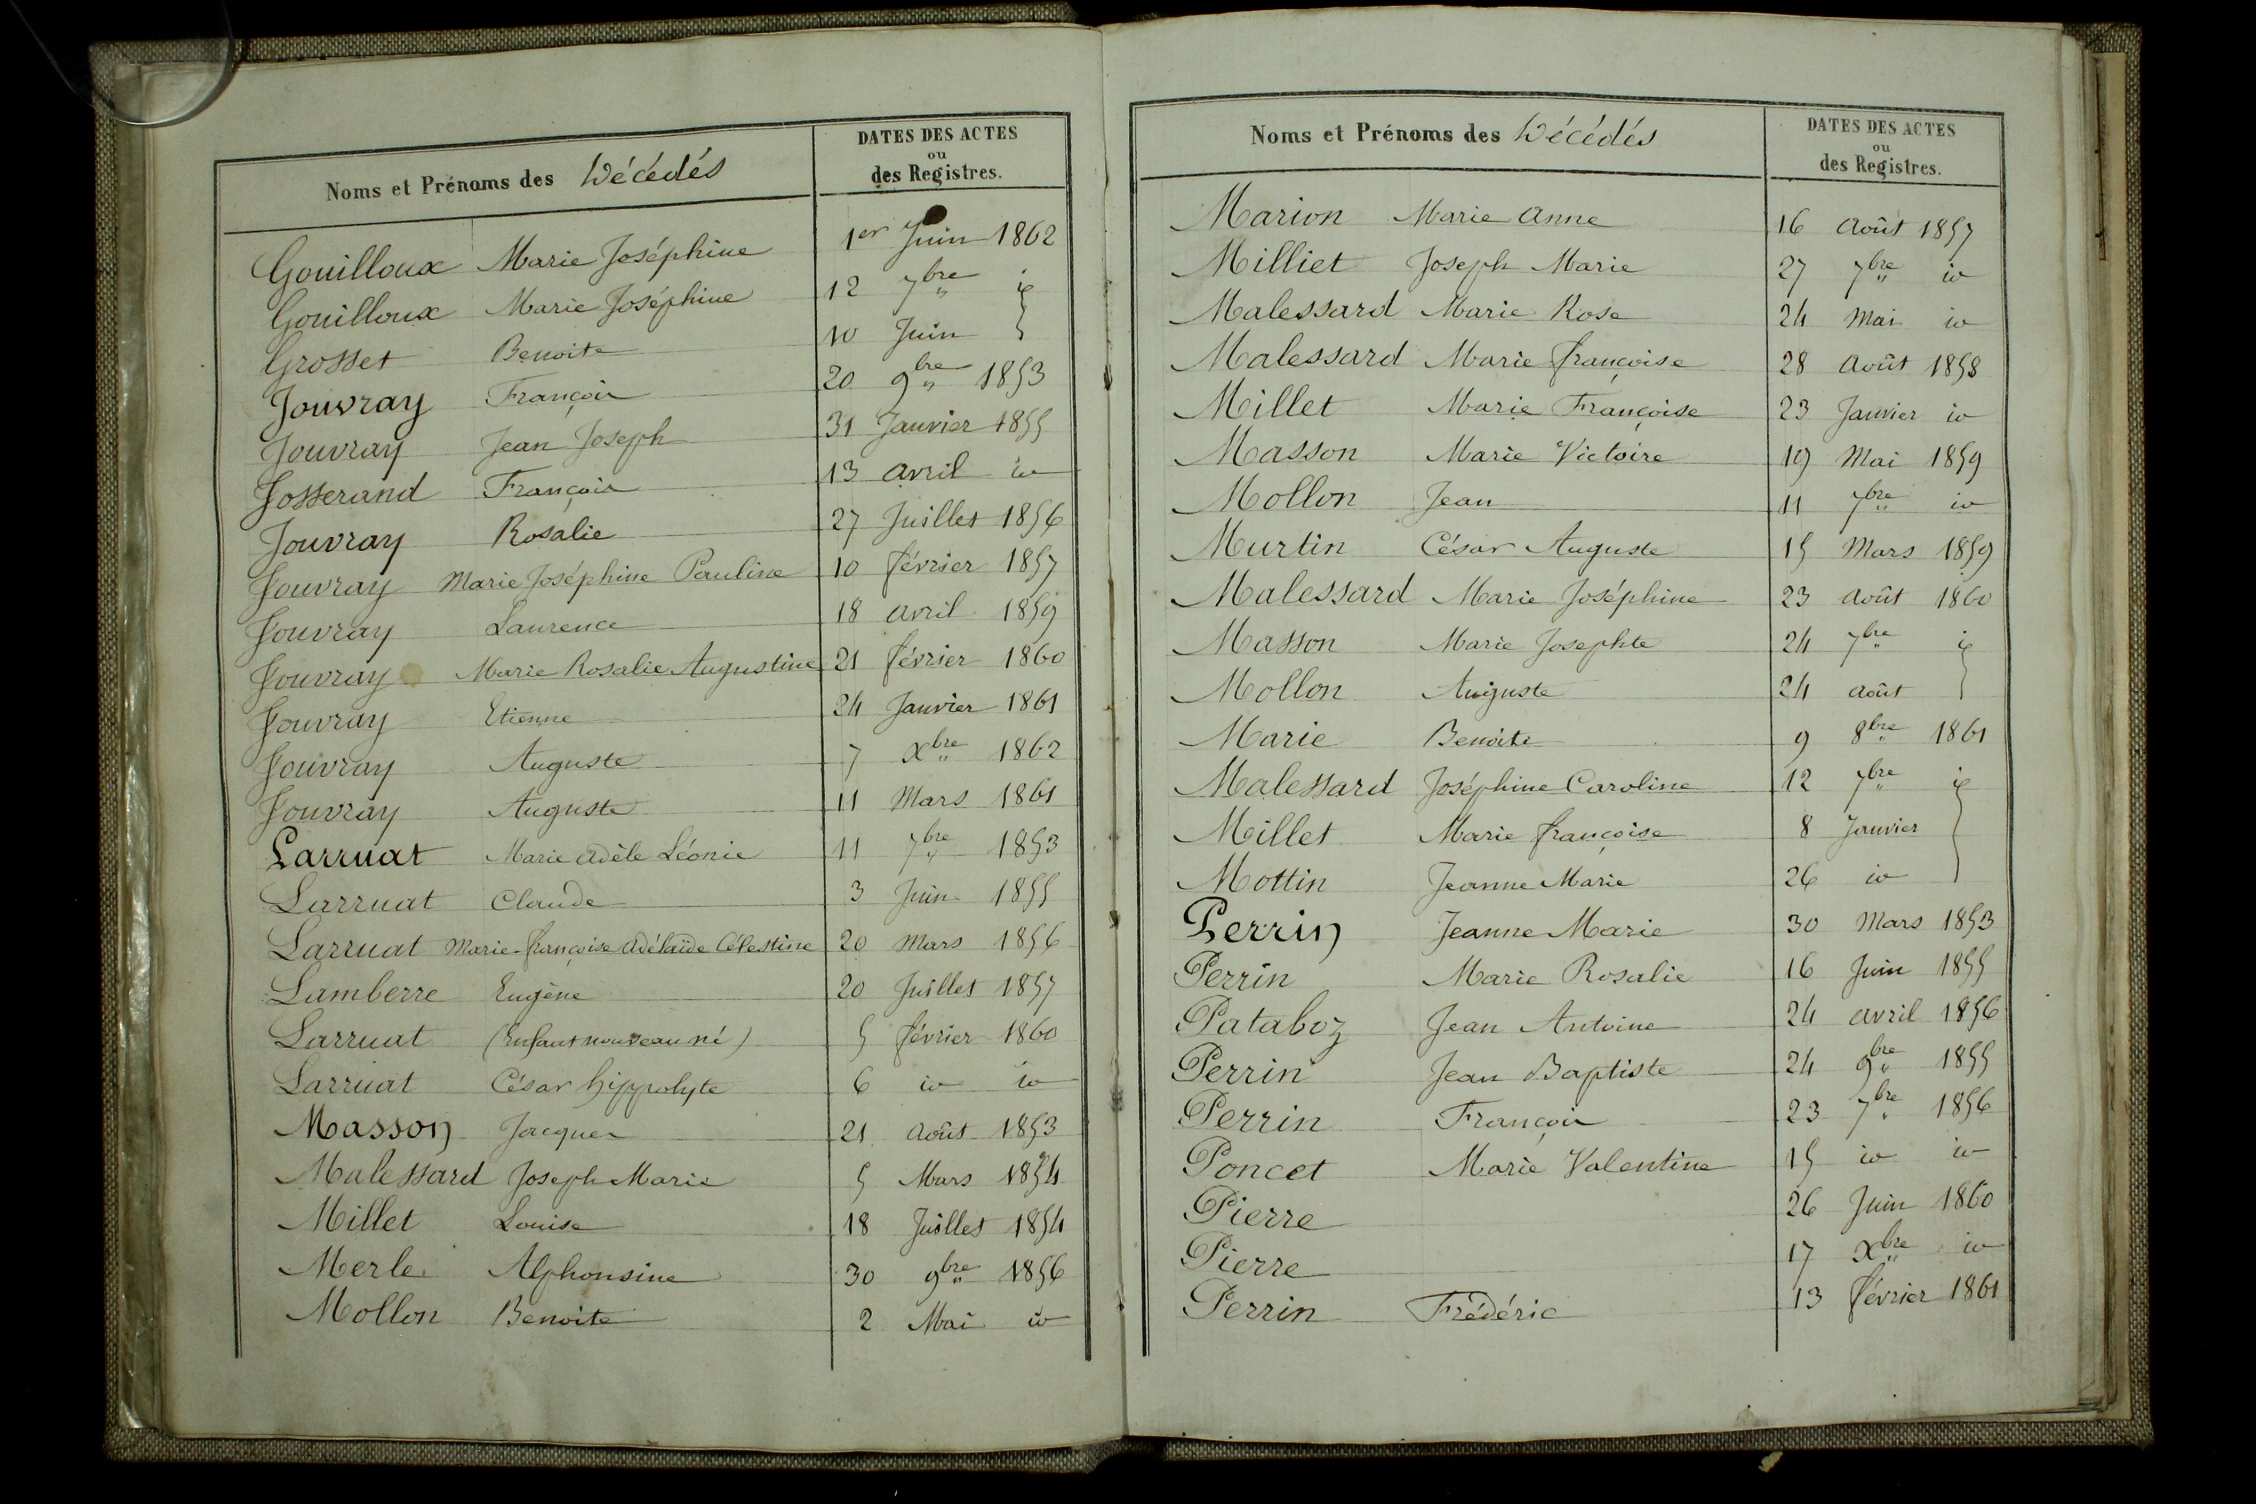 Noms et Prénoms des Décédés
DATES DES ACTES
ou
des Registres.
Gouilloux Marie Joséphine 1er Juin 1862
Gouilloux Marie Joséphine 12 7bre id
Grosset Benoite 10 Juin
Jouvray François 20 9bre 1853
Jouvray Jean Joseph 31 Janvier 1855
Josserand François 13 avril id
Jouvray Rosalie 27 Juillet 1856
Jouvray Marie Joséphine Pauline 10 février 1857
Jouvray Laurence 18 avril 1859
Jouvray Marie Rosalie Augustine 21 février 1860
Jouvray Etienne 24 Janvier 1861
Jouvray Auguste 7 Xbre 1862
Jouvray Auguste 11 Mars 1861
Larruat Marie Adèle Léonie 11 7bre 1853
Larruat Claude 3 Juin 1855
Larruat Marie-françoise Adélaïde Célestine 20 Mars 1856
Lamberre Eugène 20 Juillet 1857
Larruat (Enfant nouveau né) 5 février 1860
Larruat César hippolyte 6 id id
Masson Jacques 21 Août 1853
Malessard Joseph Marie 5 Mars 1854
Millet Louise 18 Juillet 1854
Merle Alphonsine 30 9bre 1856
Mollon Benoite 2 Mai id
Noms et Prénoms des Décédés
DATES DES ACTES
ou
des Registres.
Marion Marie Anne 16 Août 1857
Milliet Joseph Marie 27 7bre id
Malessard Marie Rose 24 Mai id
Malessard Marie françoise 28 Août 1858
Millet Marie Françoise 23 Janvier id
Masson Marie Victoire 19 Mai 1859
Mollon Jean 11 7bre id
Murtin César Auguste 15 Mars 1859
Malessard Marie Joséphine 23 Août 1860
Masson Marie Josephte 24 7bre id
Mollon Auguste 24 août
Marie Benoite 9 8bre 1861
Malessard Joséphine Caroline 12 7bre id
Millet Marie françoise 8 Janvier
Mottin Jeanne Marie 26 id
Perrin Jeanne Marie 30 Mars 1853
Perrin Marie Rosalie 16 Juin 1855
Pataboz Jean Antoine 24 avril 1856
Perrin Jean Baptiste 24 9bre 1855
Perrin François 23 7bre 1856
Poncet Marie Valentine 15 id id
Pierre 26 Juin 1860
Pierre 17 Xbre id
Perrin Frédéric 13 février 1861